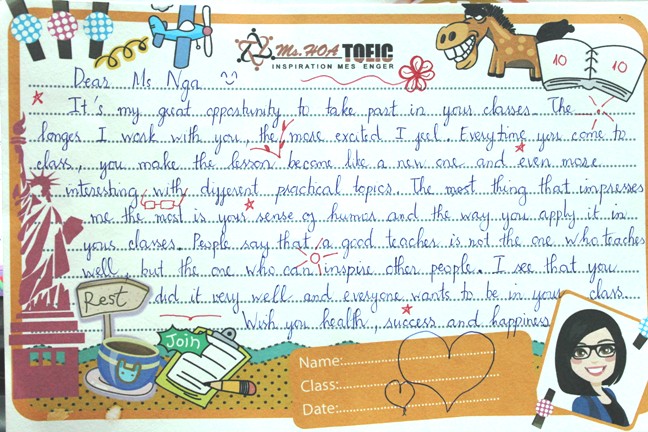 Ms. HOA TOEIC
INSPIRATION MESSENGER
10 10
Dear Ms Nga
It's my great opportunity to take part in your classes. The
longer I work with you, the more excited I feel. Everytime you come to
class, you make the lesson become like a new one and even more
interesting with different practical topics. The most thing that impresses
me the most is your sense of humor and the way you apply it in
your classes. People say that a good teacher is not the one who teaches
well, but the one who can inspire other people. I see that you
did it very well and everyone wants to be in your class.
Wish you health, success and happiness
Rest
Join
Name:
Class:
Date: